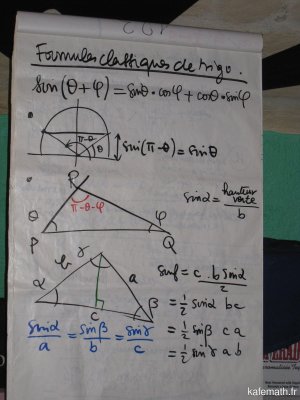 Formules classiques de trigo.
sin(θ+φ) = sinθ·cosφ + cosθ·sinφ
π-θ
θ
sin(π-θ) = sinθ
R
π-θ-φ
θ
φ
P
Q
sinα = hauteur verte / b
b
γ
a
α
β
c
surf = c · b sinα / 2
= 1/2 sinα bc
= 1/2 sinβ ca
= 1/2 sinγ ab
sinα/a = sinβ/b = sinγ/c
kafemath.fr